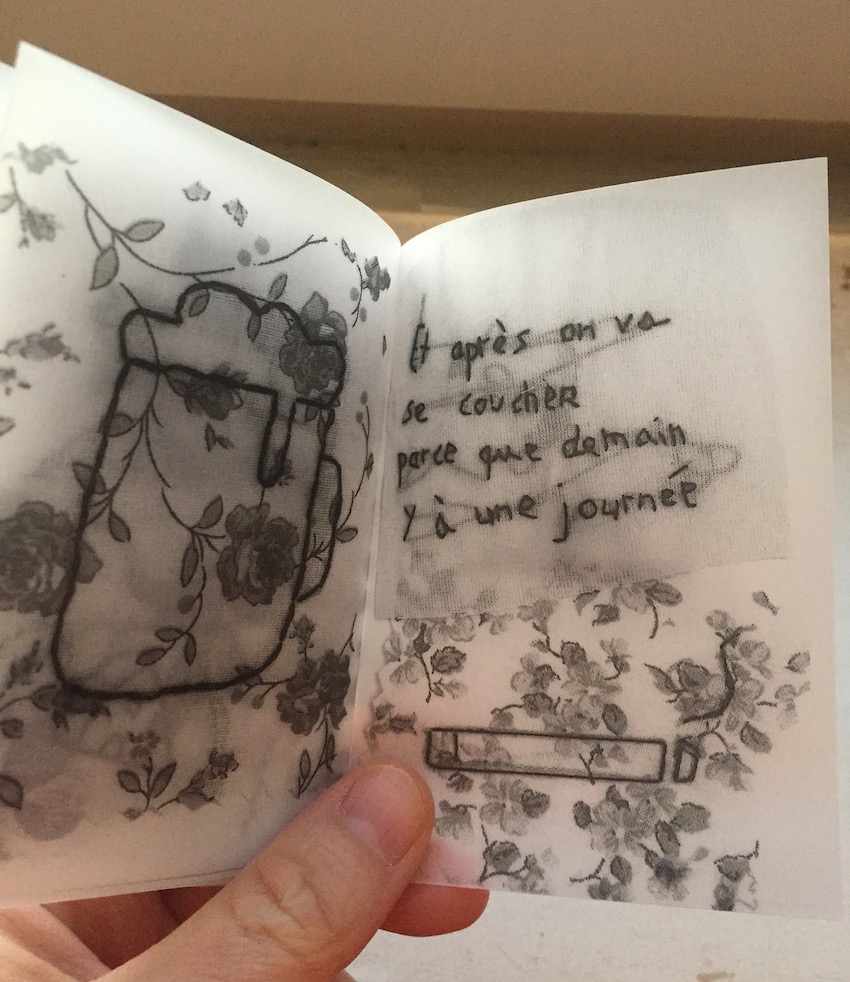 Et après on va
se coucher
parce que demain
y à une journée